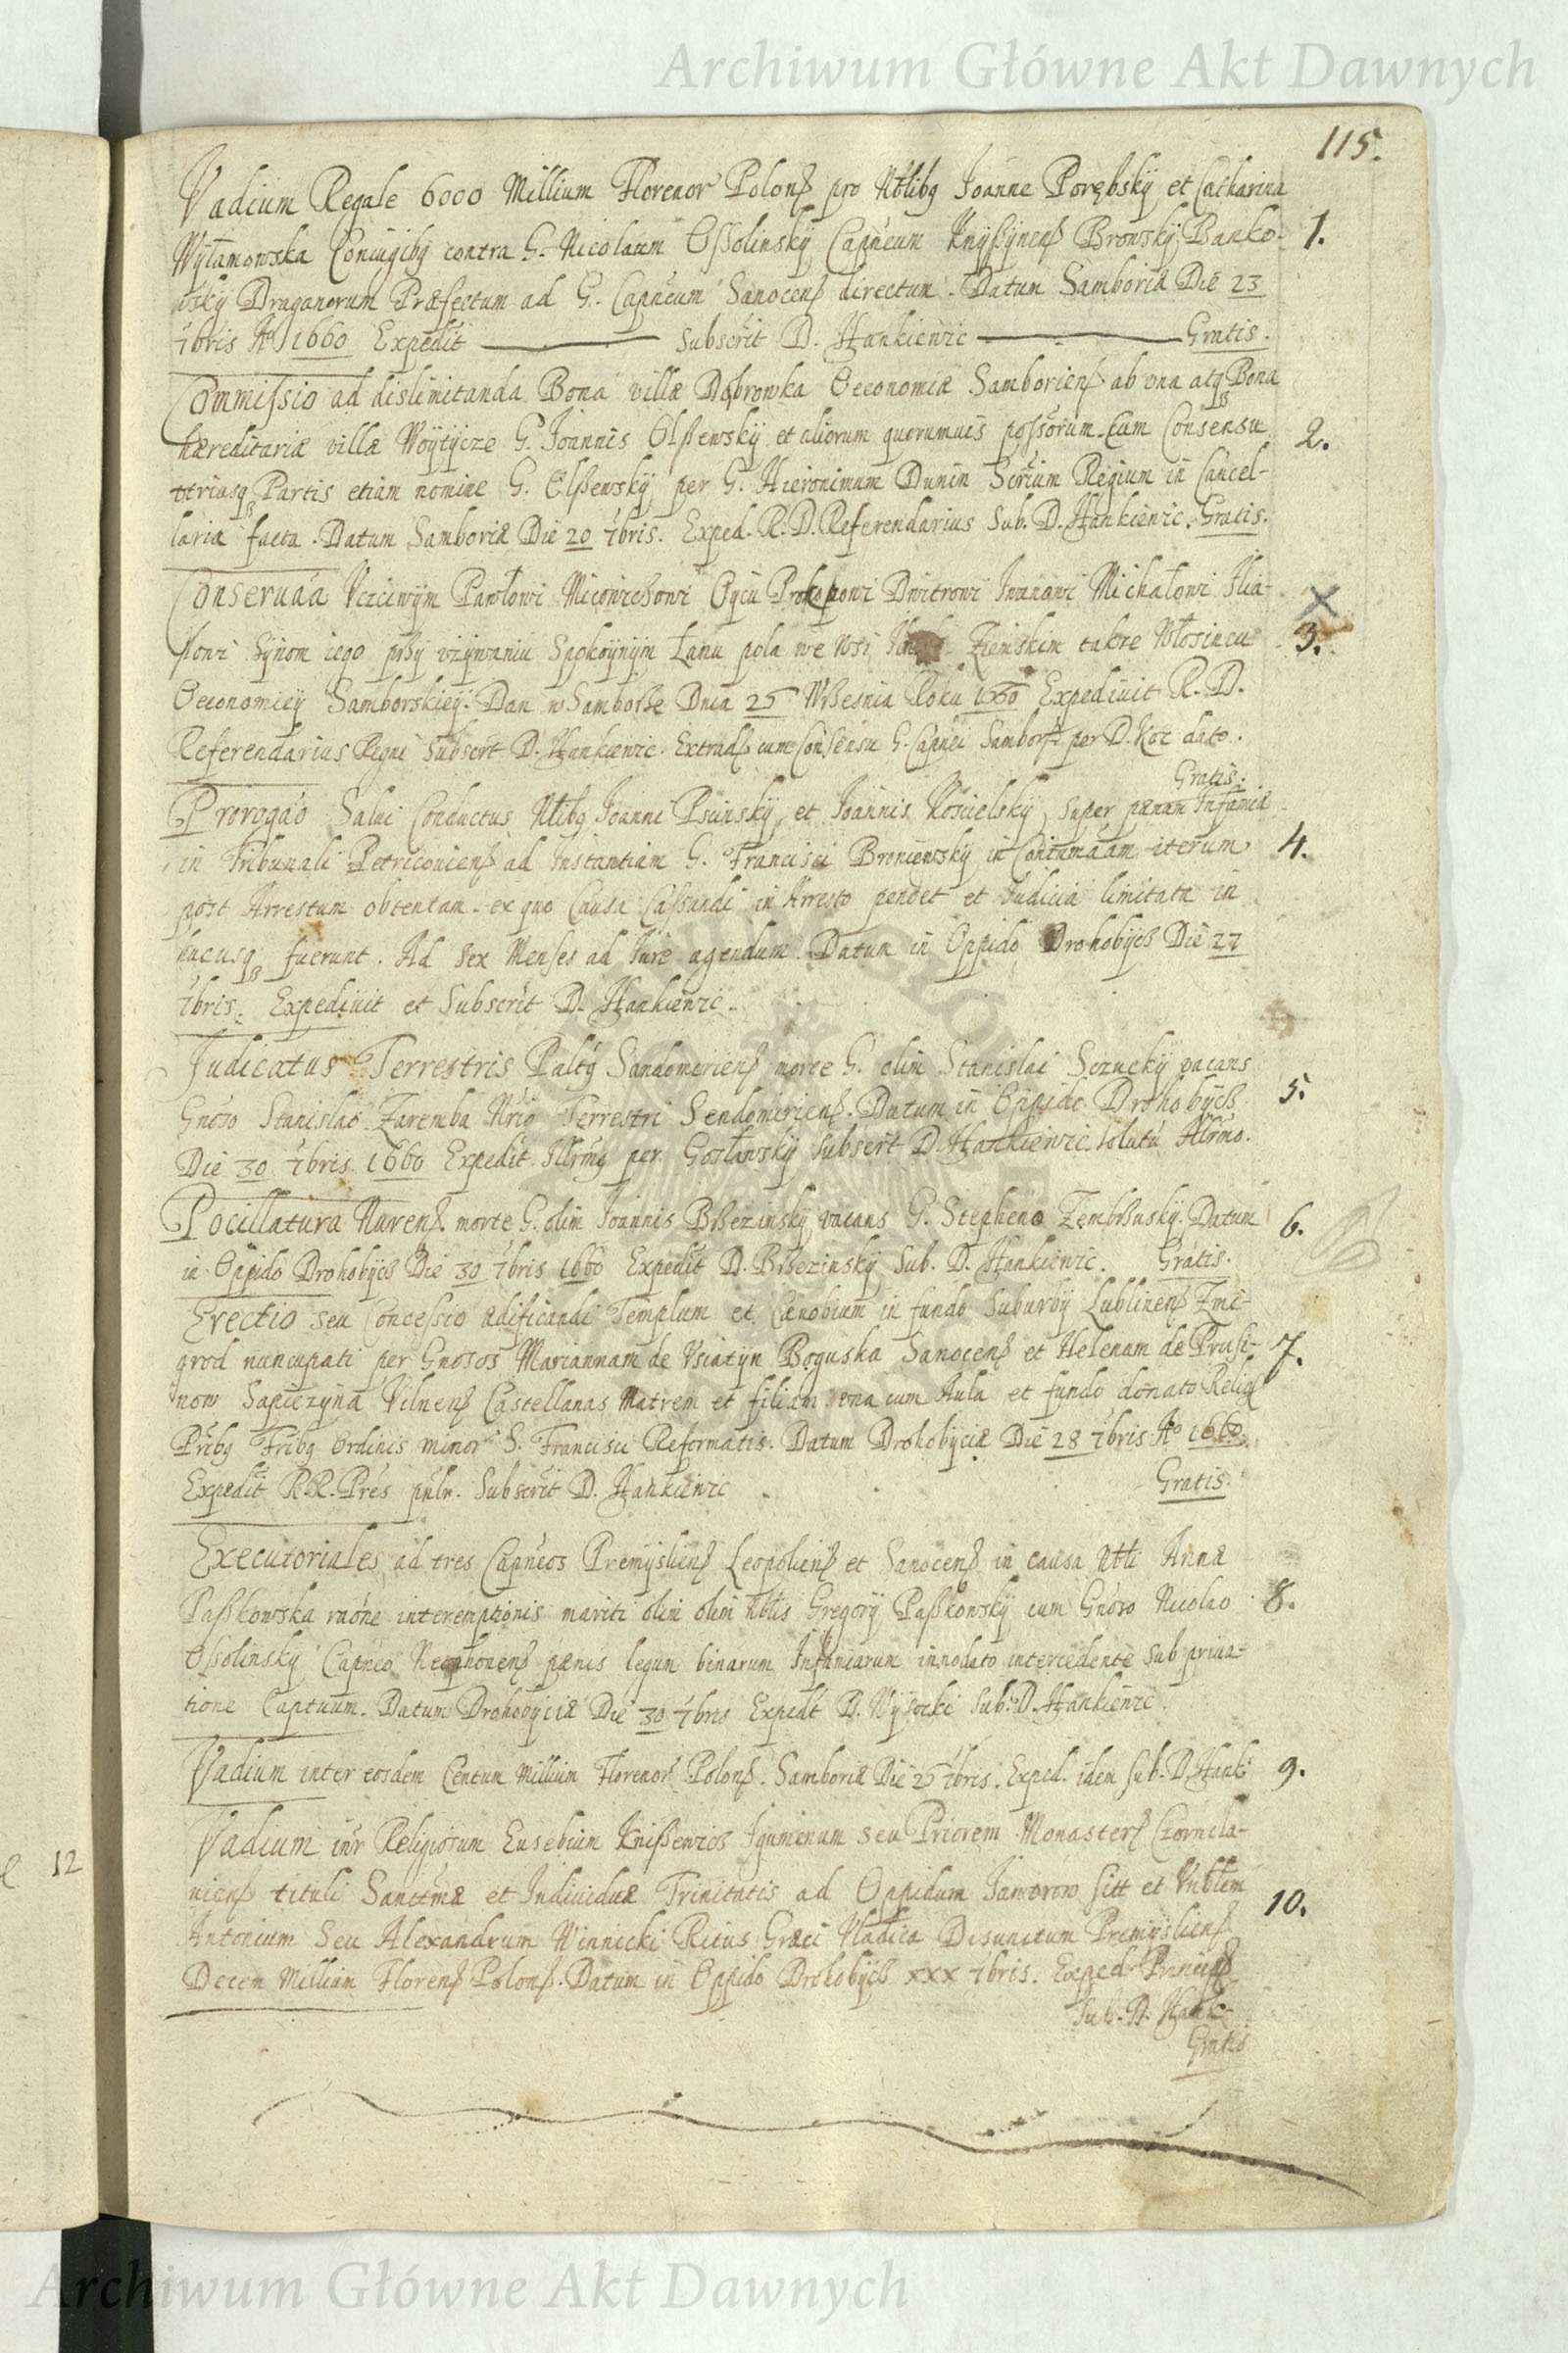 Archiwum Główne Akt Dawnych
115.
Vadium Regale 6000 Millium Florenor Polons pro Ntlibg Joanne Porębsky et Catharina
Wylamowska Coniugibg contra G. Nicolaum Ossolinsky Capneum Knyszynens Browsky Banko- 1.
wsky Draganorum Præfectum ad G. Capneum Sanocens directum. Datum Samboriæ Die 23
7bris Ao 1660 Expedit Subscrit D. Hankiewic Gratis.
Commissio ad dislimitanda Bona villæ Dąbrowka Oeconomiæ Samboriens ab vna atq Bona
hæreditariæ villæ Woytycze G. Joannis Olszewsky et aliorum quorumuis possorum. Cum Consensu 2.
vtriusq Partis etiam nomine G. Olszewsky per G. Hieronimum Dunin Scrium Regium in Cancel-
laria facta. Datum Samboriæ Die 20 7bris. Exped. R. D. Referendarius Sub. D. Hankiewic. Gratis.
Conseruaa Vczciwym Pawłowi Oycu Prokopowi Dmitrowi Iwanowi Michałowi Ilia-
szowi Synom iego przy vzywaniu Spokoynym Łanu pola we Wsi Ziemskim także Włosincu 3.
Oeconomiey Samborskiey. Dan w Samborze Dnia 25 Wrzesnia Roku 1660 Expediuit R. D.
Referendarius Regni Subscrt D. Hankiewic. Extrads cum Consensu G. Capnei Sambors per D. Koc dato.
Gratis.
Prorogao Salui Conductus Ntlibg Joanni Psunsky et Joannis Koscielsky super pænam Infamiæ
in Tribunali Petricouiens ad Instantiam G. Francisci Broniewsky in Contumaam iterum 4.
post Arrestum obtentam ex quo Causa Cassandi in Arresto pendet et Iudicia limitata in
hucusq fuerunt. Ad Sex Menses ad Iure agendum. Datum in Oppido Drohobycz Die 27
7bris. Expediuit et Subscrit D. Hankiewic.
Judicatus Terrestris Paltg Sandomiriens morte G. olim Stanislai Sczucky vacans
Gnoso Stanislao Zaremba Nrio Terrestri Sendomiriens. Datum in Oppido Drohobycz 5.
Die 30 7bris 1660 Expedit Illrmg per Gosławsky Subscrt D. Hankiewic. Solutu Illrmo.
Pocillatura Nurens morte G. olim Joannis Brzezinsky vacans G. Stephano Zembrzusky. Datum 6.
in Oppido Drohobycz Die 30 7bris 1660 Expedit D. Brzezinsky Sub. D. Hankiewic. Gratis.
Erectio seu Concessio ædificandi Templum et Cænobium in fundo Suburbij Lublinens Zmi-
grod nuncupati per Gnosos Mariannam de Vsciatyn Boguska Sanocens et Helenam de Prusi- 7.
now Sapiezyna Vilnens Castellanas Matrem et filiam vna cum Aula et fundo donato Religs
Pribg Fribg Ordinis minor S. Francisci Reformatis. Datum Drohobyciæ Die 28 7bris Ao 1660.
Expedit RR. Pres Subscrit D. Hankiewic Gratis.
Executoriales ad tres Capneos Premysliens Leopoliens et Sanocens in causa Ntli Annæ
Paszkowska raone interemptionis mariti olim olim Nblis Gregory Paszkowsky cum Gnoso Nicolao 8.
Ossolinsky Capneo pænis legum binarum Infamiarum innodato intercedente Sub priua-
tione Captuum. Datum Drohobyciæ Die 30 7bris Expedt D. Wysocki Sub. D. Hankiewic.
Vadium inter eosdem Centum Millium Florenor Polons. Samboriæ Die 26 7bris. Exped. idem Sub. D. Hanki 9.
Vadium inr Religiosum Eusebium Kniszewicz Igumenum seu Priorem Monasters Czornila-
niens tituli Sanctmæ et Indiuiduæ Trinitatis ad Oppidum Jaworow sitt et Vnblem 10.
Antonium Seu Alexandrum Winnicki Ritus Græci Vladica Disunitum Premysliens
Decem Millium Florens Polons. Datum in Oppido Drohobycz xxx 7bris. Exped
Sub. D. Hank.
Gratis
12
Archiwum Główne Akt Dawnych